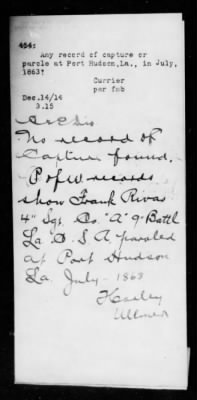 454:
Any record of capture or
parole at Port Hudson, La., in July,
1863?
Currier
per fmb
Dec.14/14
3.15
No record of
Capture found.
P of W records
show Frank Rivas
4" Sgt. Co. "A" 9" Battl
La C. S. A paroled
at Port Hudson
La July - 1863